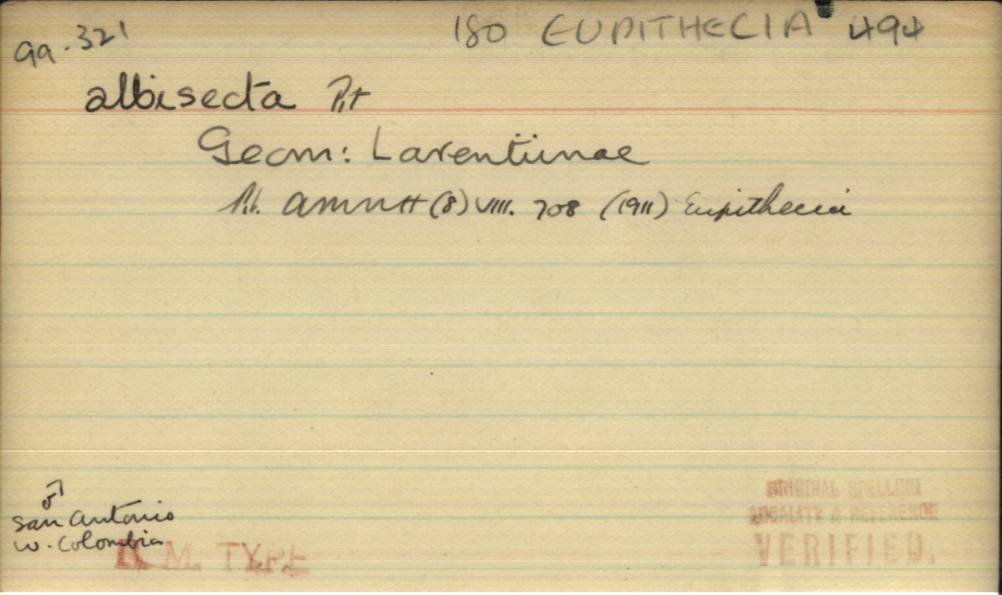 99.321
180 EUPITHECIA 494
albisecta Prt
Geom: Larentiinae
Prt. AMNH (8) VIII. 708 (1911) Eupithecia
♂
San Antonio
W. Colombia
B.M. TYPE
ORIGINAL SPELLING
LOCALITY & REFERENCE
VERIFIED.